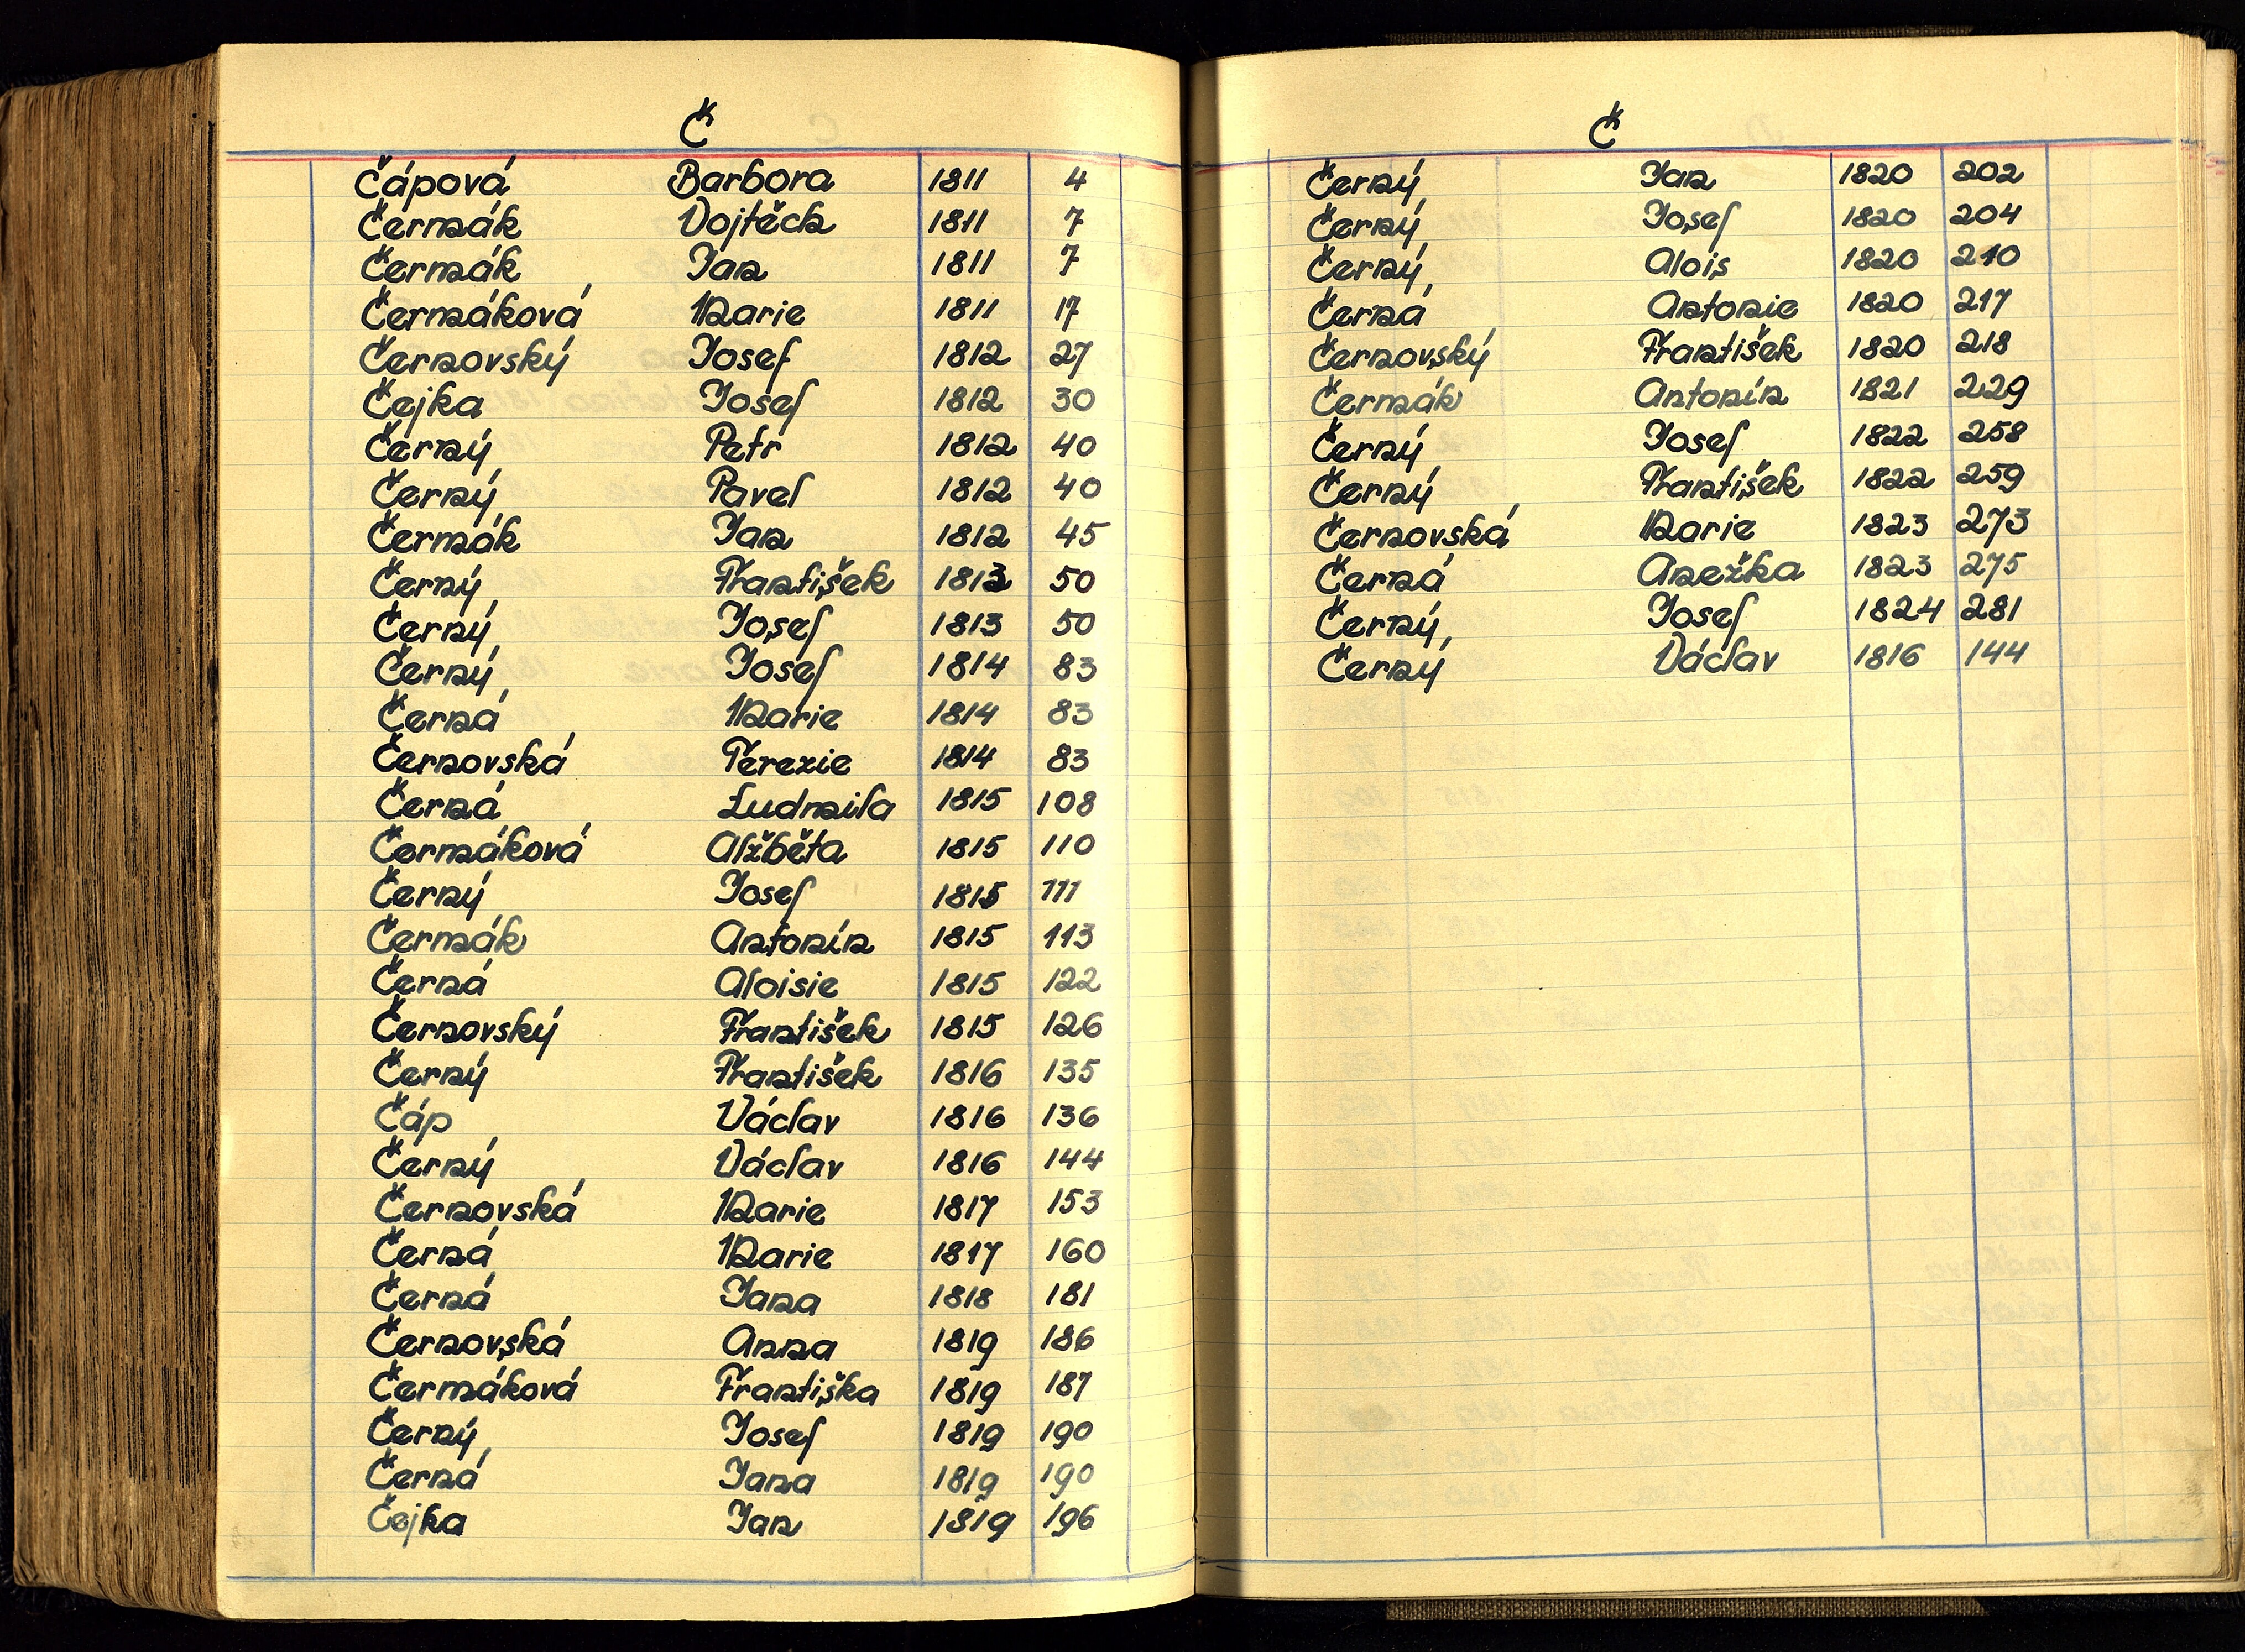 Č
Čápová Barbora 1811 4
Čermák Vojtěch 1811 7
Čermák Jan 1811 7
Čermáková Marie 1811 17
Černovský Josef 1812 27
Čejka Josef 1812 30
Černý Petr 1812 40
Černý Pavel 1812 40
Čermák Jan 1812 45
Černý František 1813 50
Černý Josef 1813 50
Černý Josef 1814 83
Černá Marie 1814 83
Černovská Terezie 1814 83
Černá Ludmila 1815 108
Čermáková Alžběta 1815 110
Černý Josef 1815 111
Čermák Antonín 1815 113
Černá Aloisie 1815 122
Černovský František 1815 126
Černý František 1816 135
Čáp Václav 1816 136
Černý Václav 1816 144
Černovská Marie 1817 153
Černá Marie 1817 160
Černá Jana 1818 181
Černovská Anna 1819 186
Čermáková Františka 1819 187
Černý Josef 1819 190
Černá Jana 1819 190
Čejka Jan 1819 196
Č
Černý Jan 1820 202
Černý Josef 1820 204
Černý Alois 1820 210
Černá Antonie 1820 217
Černovský František 1820 218
Čermák Antonín 1821 229
Černý Josef 1822 258
Černý František 1822 259
Černovská Marie 1823 273
Černá Anežka 1823 275
Černý Josef 1824 281
Černý Václav 1816 144